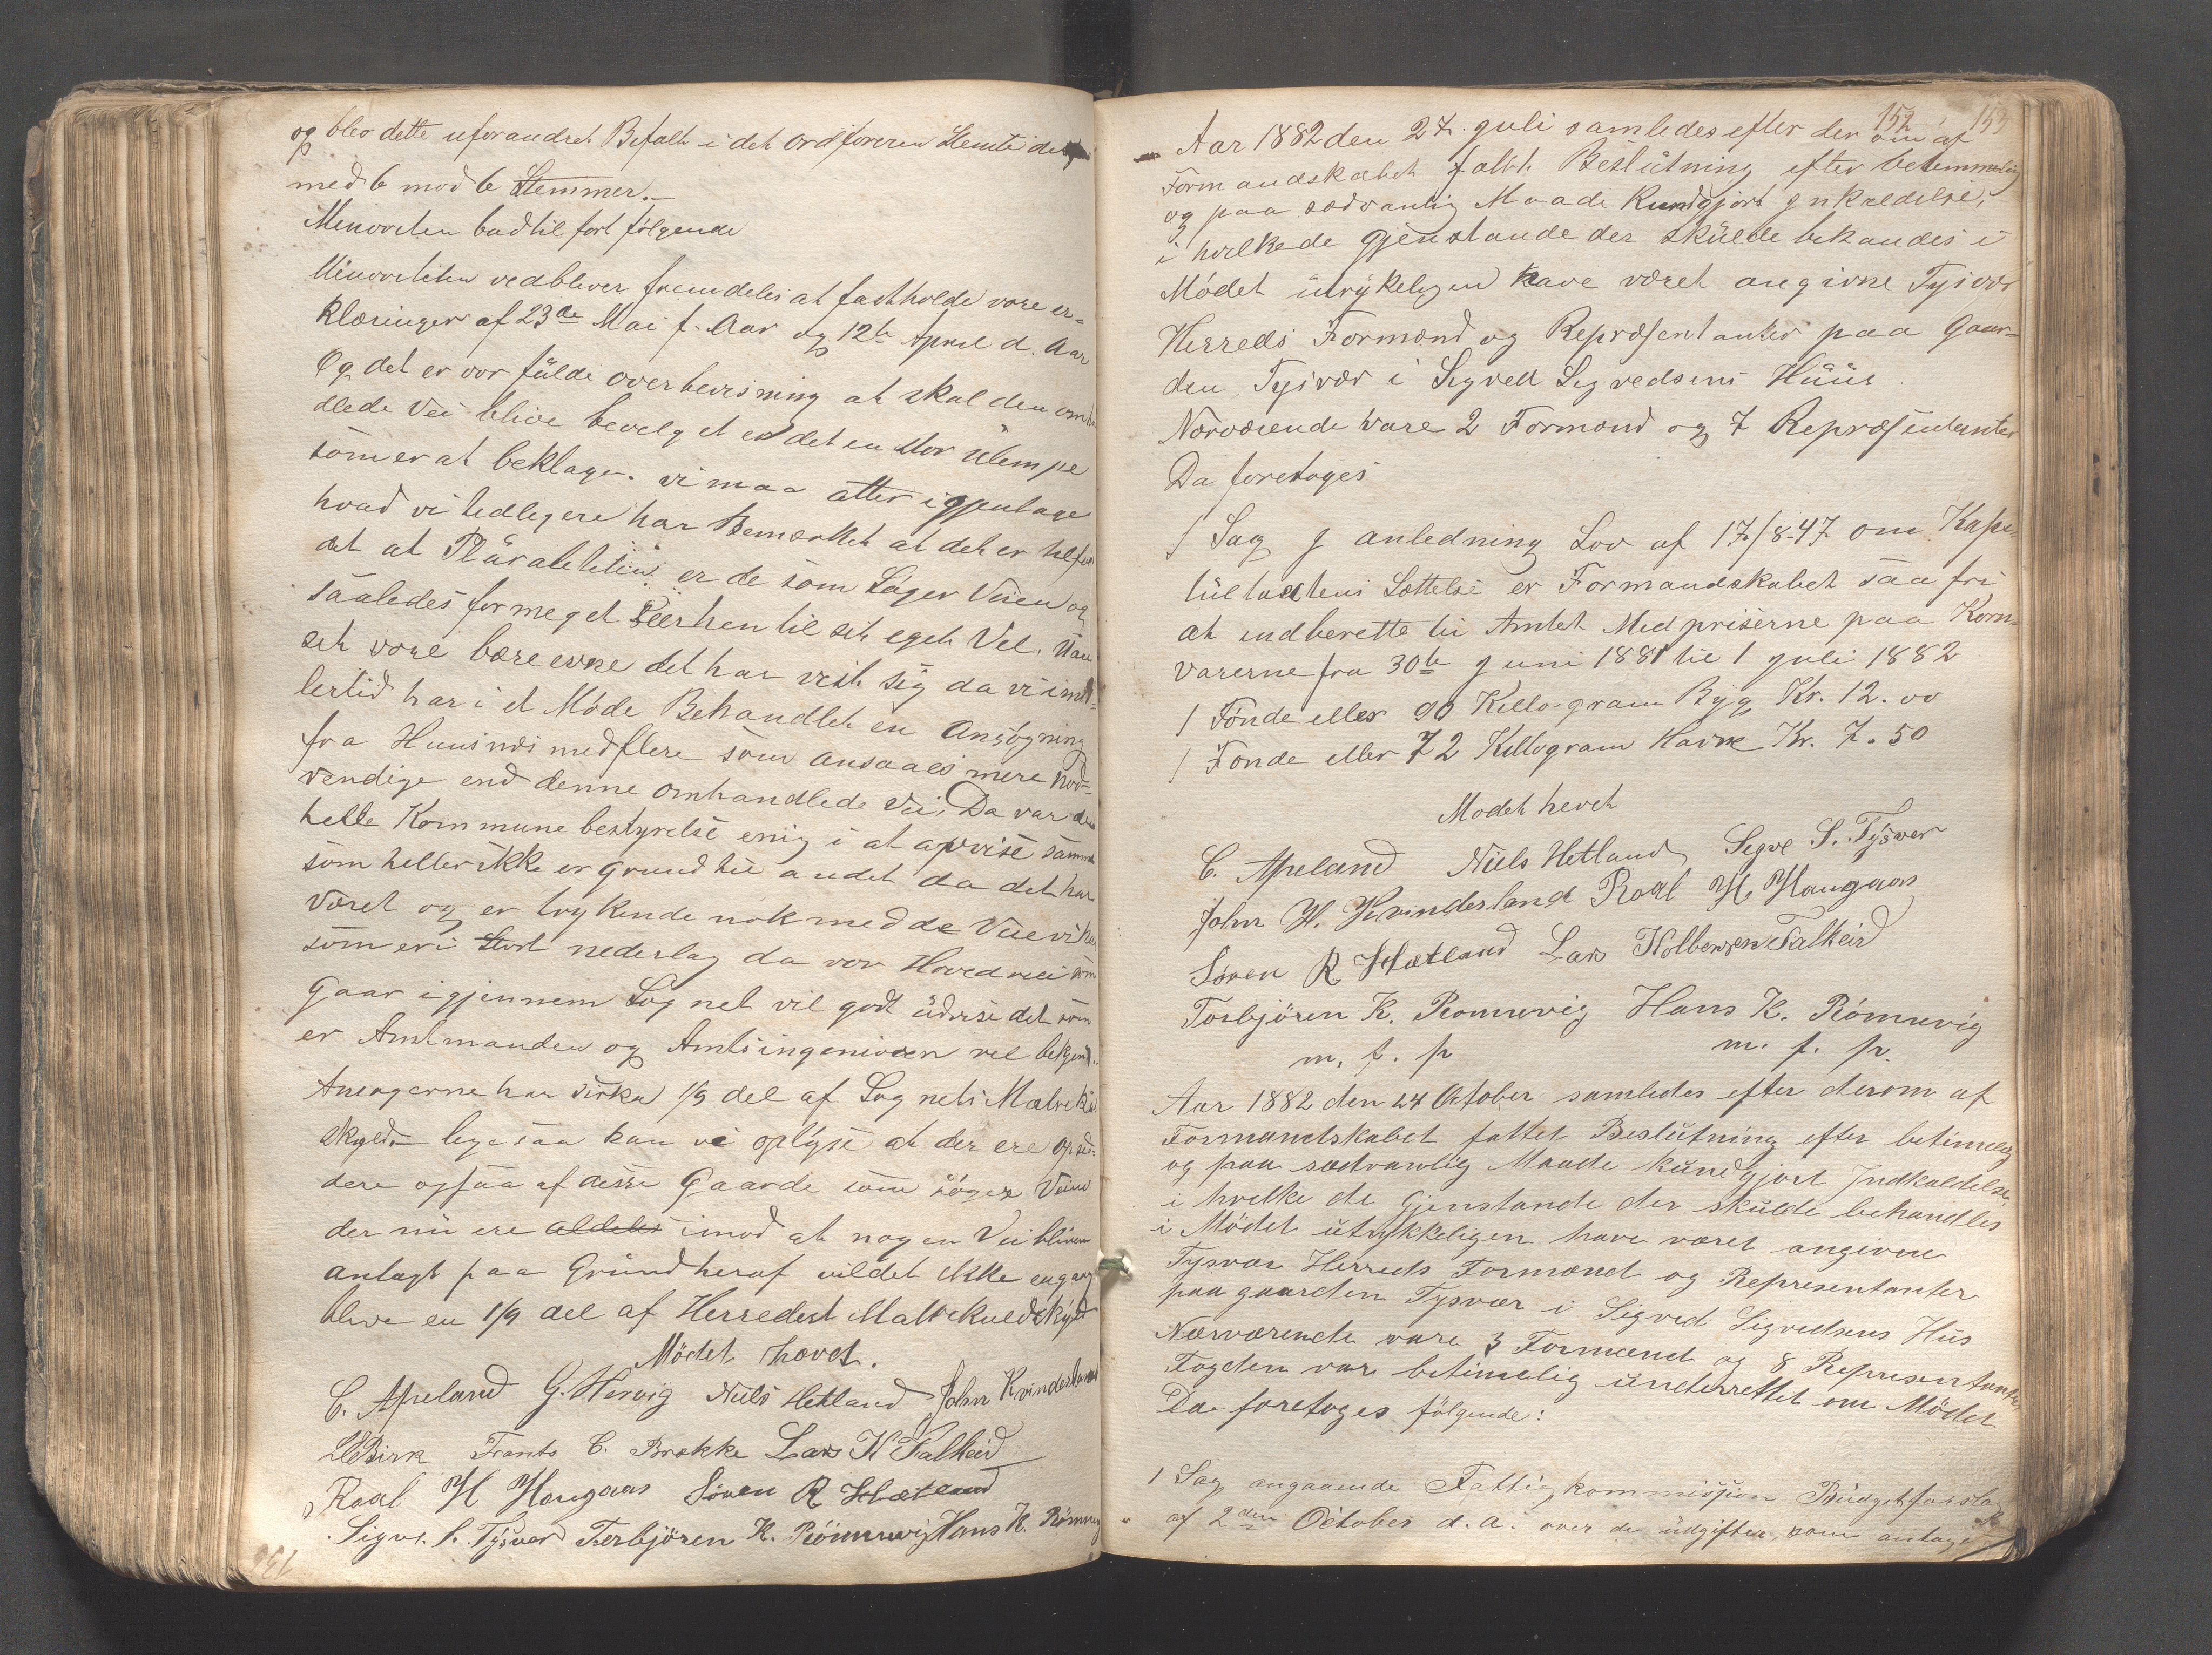 og blev dette uforandret Befalt i det ordføreren Stemte
med 6 mod 6 Stemmer.
Minoriten bad til ført følgende
Minoriteten vedbliver fremdeles at fastholde vore er=
klæringer af 23de Mai f. Aar og 12te April d. Aar
Og det er vor fülde overbevisning at skal den om
dlede Vei blive bevelget er det en stor Ulempe
som er at beklage. vi maa atter igjentage
hvad vi tedligere har Bemærket at det er
det at er de som Søger Veien og
saaledes for meget Seer hen til sit eget Vel. Uan
set vore bære evne det har vist sig da vi imid=
lertid har i et Møde Behandlet en Ansøgning
fra Huusnæs med flere som ansaaes mere nød=
vendige end denne omhandlede Vei, Da var den
helle Kommune bestyrelse enig i at afvise samme
som heller ikke er grund til andet da det har
været og er trykende nok med de Veie vi har
som er i Stort nederlag da vor Hoved vei som
Gaar igjennem Sognet vil godt üdvise det som
er Amtmanden og Amtsingeniøren vel bekjent.
Ansøgerne har sirka 1/9 del af Sognets Matrikül
skyld lige saa kan vi oplyse at der ere opsid=
dere ogsaa af disse Gaarde som søger Veien
der nü ere aldeles imod at nogen Vei bliver
anlagt paa Gründ heraf vil det ikke engang
blive en 1/9 del af Herredest Matrikuel skyld
Mödet hævet.
C. Apeland G. Hervig Niels Hetland John Kvindesland
Birk Frants C. Brække Lars K Falkeid
Roal H Haugaas Sören R Hætland
Sigve. S. Tysver Torbjören K. Römmvig Hans K. Römmvig
152 153
Aar 1882 den 27. Juli samledes efter der om af
Formandskabet fatt. Beslütning efter betimmelig
og paa sædvanlig Maade Kundgjort Inkaldelse,
i hvilke de gjenstande der skülde behandes i
Mödet üdrykeligen have været angivne Tysvær
Herreds Formænd og Repræsentanter paa Gaar=
den Tysvær i Sigved Sigvedsens Hüüs
Nærværende vare 2 Formænd og 7 Repræsentanter
Da foretoges
1 Sag J anledning Lov af 17/8-47 om Kapi
tültaxtens Sættelse er Formandskabet saa fri
at indberette til Amtet Medpriserne paa Korn=
varerne fra 30te Juni 1881 til 1 Juli 1882
1 Tønde eller 90 Killogram Byg Kr. 12.00
1 Tønde eller 72 Killogram Havre Kr. 7.50
Modet hevet
C. Apeland Niels Hetland Sigve S. Tysver
John H. Kvindesland Roal H. Haugaas
Sören R Hætland Lars Kolbensen Falkeid
Torbjören K. Romuvig Hans K. Römmvig
m. f. p m. f. p.
Aar 1882 den 24 October samledes efter derom af
Formandskabet fattet Beslütning efter betimelig
og paa sædvanlig Maade kündgjort Indkaldelse,
i hvilke de Gjenstande der skülde behandles
i Mödet üdtrykkeligen have været angivne
Tysvær Herreds Formænd og Representanter
paa gaarden Tysvær i Sigved Sigvedsens Hüs
Nærværende vare 3 Formænd og 8 Representanter
Fogden var betimelig ünderrettet om Mödet
Da foretoges fölgende:
1 Sag angaaende Fattigkommission Büdgetforslag
af 2den October d. a. over de üdgifter som antages